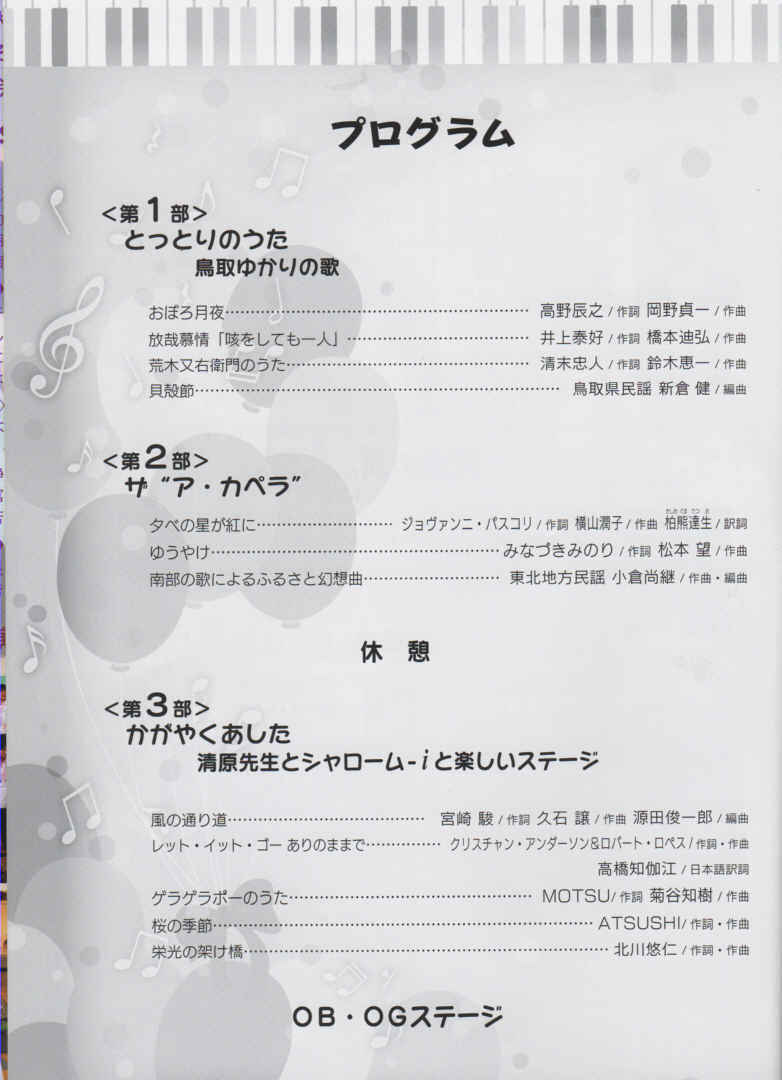 プログラム
<第1部>
とっとりのうた
鳥取ゆかりの歌
おぼろ月夜…………………………………………… 高野辰之/作詞 岡野貞一/作曲
放哉慕情「咳をしても一人」…………………… 井上泰好/作詞 橋本迪弘/作曲
荒木又右衛門のうた……………………………… 清末忠人/作詞 鈴木恵一/作曲
貝殻節………………………………………………… 鳥取県民謡 新倉 健/編曲
<第2部>
ザ“ア・カペラ”
夕べの星が紅に……………… ジョヴァンニ・パスコリ/作詞 横山潤子/作曲 柏熊達生/訳詞
ゆうやけ……………………………………… みなづきみのり/作詞 松本 望/作曲
南部の歌によるふるさと幻想曲………………… 東北地方民謡 小倉尚継/作曲・編曲
休 憩
<第3部>
かがやくあした
清原先生とシャローム-iと楽しいステージ
風の通り道………………………… 宮崎 駿/作詞 久石 譲/作曲 源田俊一郎/編曲
レット・イット・ゴー ありのままで…………… クリスチャン・アンダーソン&ロバート・ロペス/作詞・作曲
高橋知伽江/日本語訳詞
ゲラゲラポーのうた……………………………… MOTSU/作詞 菊谷知樹/作曲
桜の季節……………………………………………… ATSUSHI/作詞・作曲
栄光の架け橋…………………………………………… 北川悠仁/作詞・作曲
OB・OGステージ